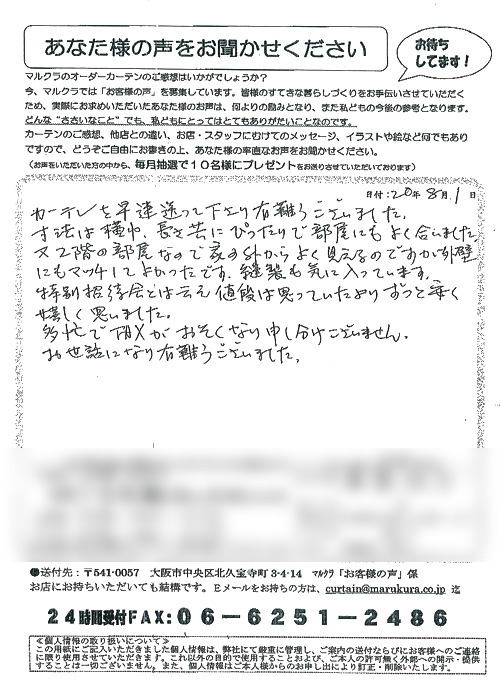 あなた様の声をお聞かせください
お待ち
してます!
マルクラのオーダーカーテンのご感想はいかがでしょうか?
今、マルクラでは「お客様の声」を募集しています。皆様のすてきな暮らしづくりをお手伝いさせていただく
ため、実際にお求めいただいたあなた様のお声は、何よりの励みとなり、また私どもの今後の参考となります。
どんな“ささいなこと”でも、私どもにとってはとてもありがたいことなのです。
カーテンのご感想、他店との違い、お店・スタッフにむけてのメッセージ、イラストや絵など何でもあり
ですので、どうぞご自由にお書きの上、あなた様の率直なお声をお聞かせください。
(お声をいただいた方の中から、毎月抽選で10名様にプレゼントをお送りさせていただいております)
日付:20年8月1日
カーテンを早速送って下さり有難うございました。
寸法は横巾、長さ共にぴったりで部屋にもよく合いました。
又2階の部屋なので家の外からよく見えるのですが外壁
にもマッチしてよかったです。縫製も気に入っています。
特別招待会とは云え値段は思っていたよりずっと安く
嬉しく思いました。
多忙でFAXがおそくなり申し分けございません。
お世話になり有難うございました。
●送付先:〒541-0057 大阪市中央区北久宝寺町3-4-14 マルクラ「お客様の声」係
お店にお持ちいただいても結構です。Eメールをお持ちの方は、curtain@marukura.co.jp 迄
24時間受付FAX:06-6251-2486
≪個人情報の取り扱いについて≫
この用紙にご記入いただきました個人情報は、弊社にて厳重に管理し、ご案内の送付ならびにお客様へのご連絡
に限り使用させていただきます。これ以外の目的で使用することおよび、ご本人の許可無く外部への開示・提供
することは一切ございません。また、個人情報はご本人様からのお申し出により訂正・削除いたします。